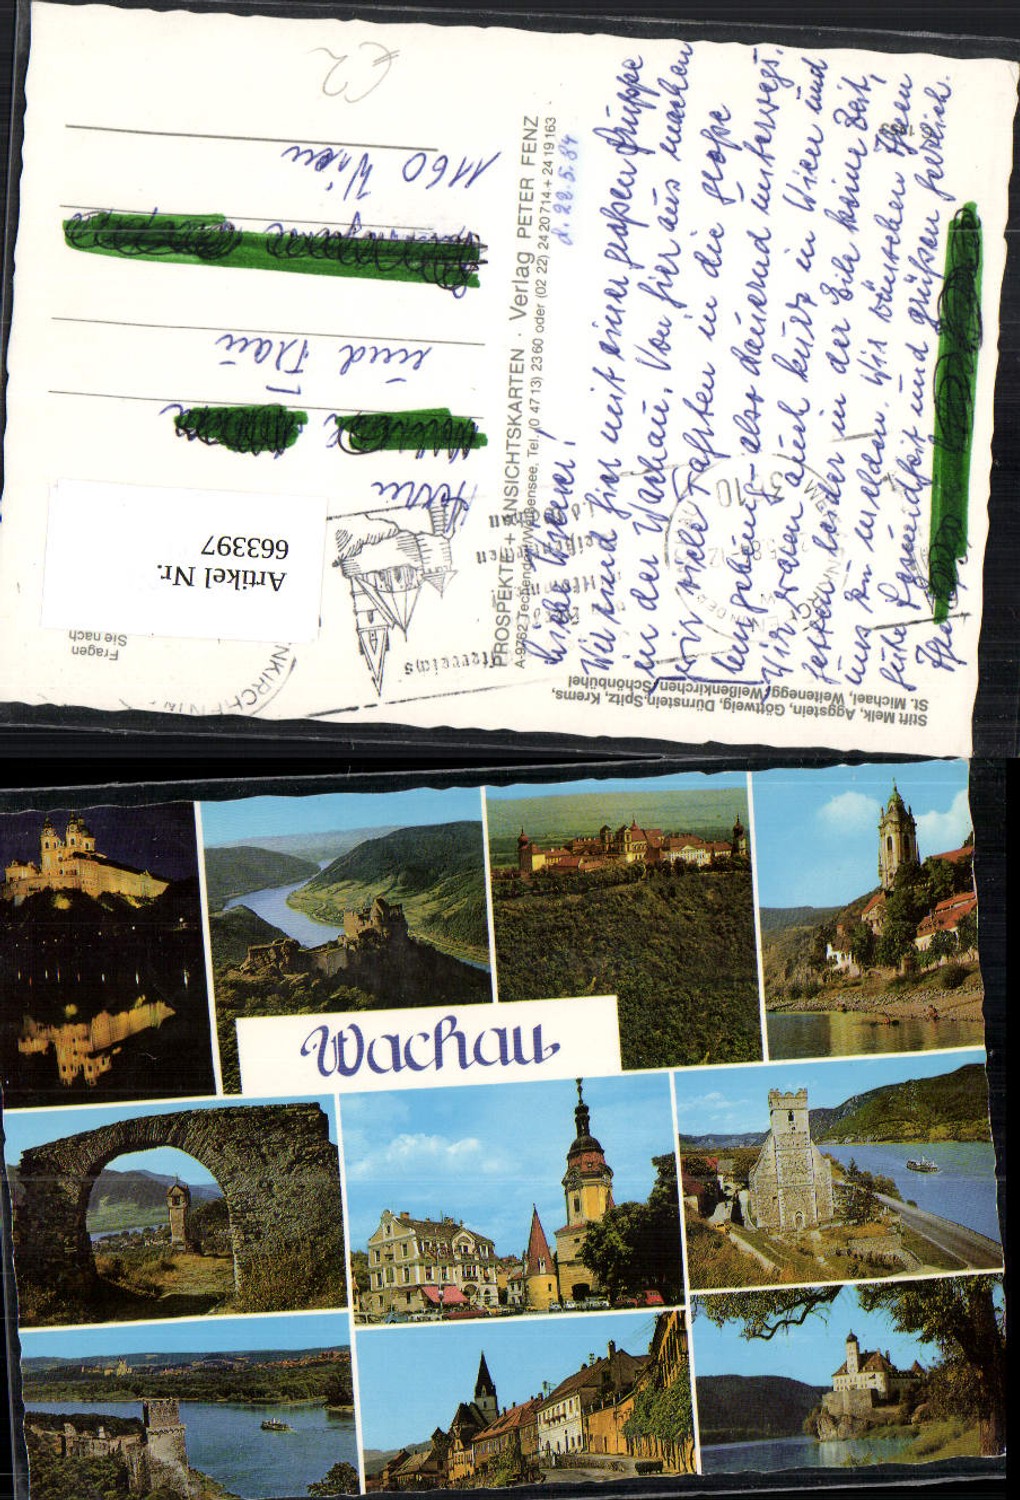 €2
1160 Wien
und Frau
Herrn
Artikel Nr.
663397
Fragen
Sie nach
PROSPEKTE + ANSICHTSKARTEN · Verlag PETER FENZ
A-9762 Techendorf/Weißensee, Tel. (0 47 13) 23 60 oder (02 22) 24 20 714 + 24 19 163
d. 22.5.84
Wir sind hier mit einer großen Gruppe
in der Wachau. Von hier aus machen
wir viele Fahrten in die große
Umgebung – also dauernd unterwegs.
Wir waren auch kurz in Wien und
hatten leider in der Eile keine Zeit,
uns zu melden. Wir wünschen Ihnen
gute Gesundheit und grüßen herzlich.
Stift Melk, Aggstein, Göttweig, Dürnstein, Spitz, Krems,
St. Michael, Weitenegg, Weißenkirchen, Schönbühel
Wachau